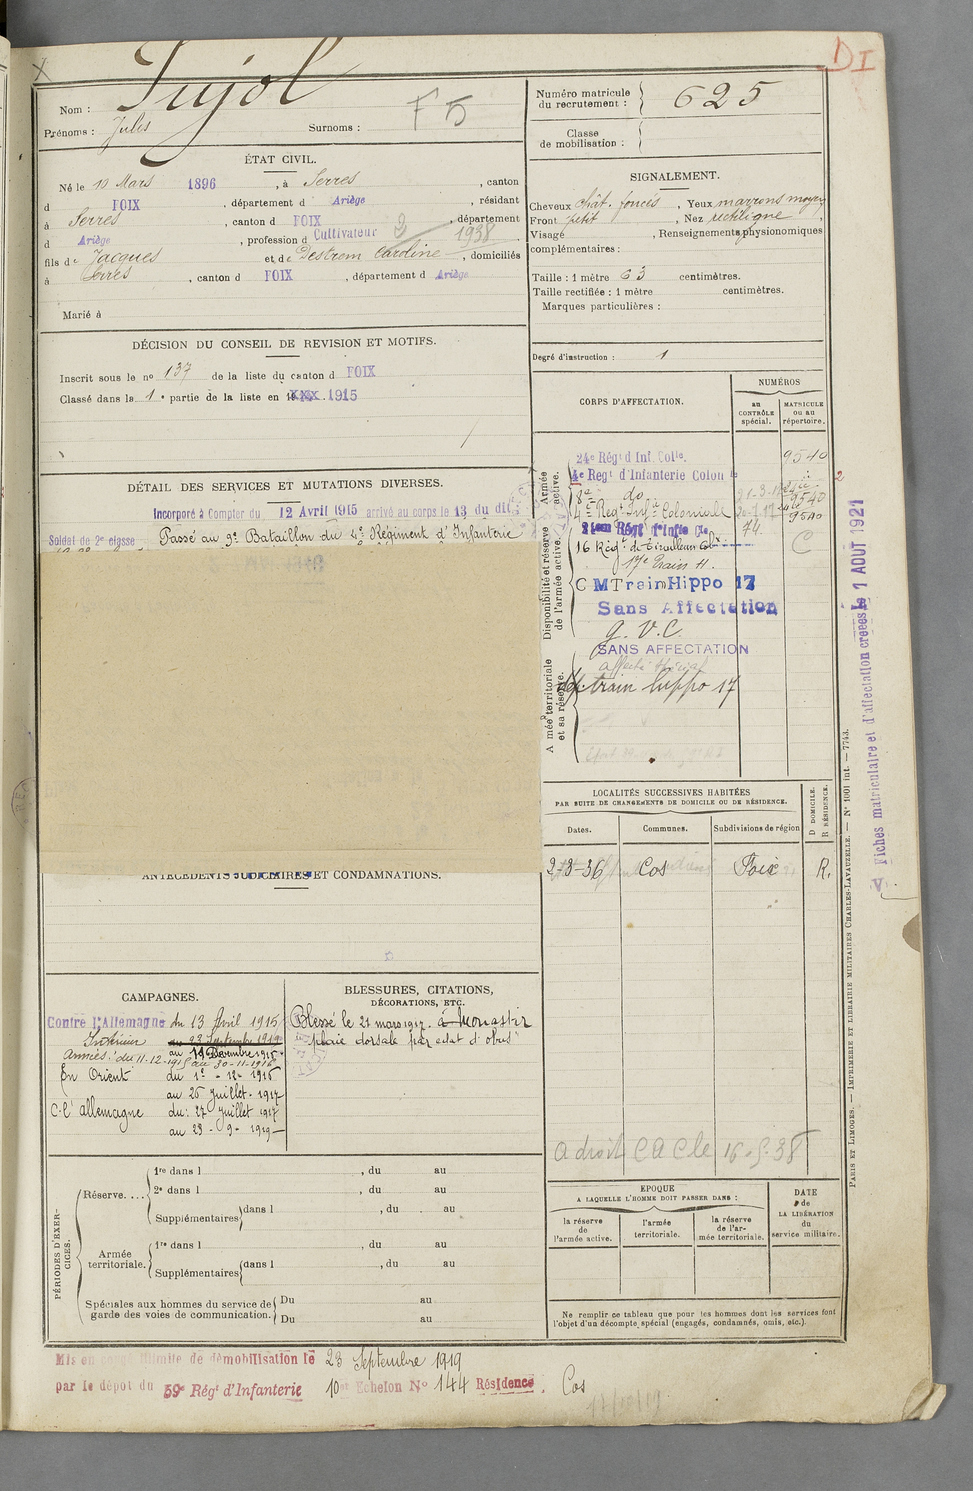 DI
Nom : Pujol
Prénoms : Jules Surnoms : F 5
Numéro matricule du recrutement : 625
Classe de mobilisation :
ÉTAT CIVIL.
Né le 10 Mars 1896, à Serres, canton
d FOIX, département d Ariège, résidant
à Serres, canton d FOIX, département
d Ariège, profession d Cultivateur 1938
fils de Jacques et de Destrem Caroline, domiciliés
à Serres, canton d FOIX, département d Ariège
Marié à
SIGNALEMENT.
Cheveux chât. foncés, Yeux marrons moyen
Front petit, Nez rectiligne
Visage, Renseignements physionomiques
complémentaires :
Taille : 1 mètre 63 centimètres.
Taille rectifiée : 1 mètre centimètres.
Marques particulières :
Degré d'instruction : 1
DÉCISION DU CONSEIL DE REVISION ET MOTIFS.
Inscrit sous le no 137 de la liste du canton d FOIX
Classé dans la 1e partie de la liste en 19XXX 1915
DÉTAIL DES SERVICES ET MUTATIONS DIVERSES.
Incorporé à Compter du 12 Avril 1915 arrivé au corps le 13 du dit
Soldat de 2e classe Passé au 9e Bataillon du 4e Régiment d'Infanterie
CORPS D'AFFECTATION.
NUMÉROS
au CONTRÔLE spécial.
MATRICULE ou au répertoire.
Armée active.
Disponibilité et réserve de l'armée active.
Armée territoriale et sa réserve.
24e Régt d'Inf. Colle. 9540
4e Regt d'Infanterie Colon
8e do 9540
4e Regt Infie Coloniale 9540
21em Régt d'Infie Cle 74
16 Régt de Tirailleurs Colx C
17e Train H.
CM Train Hippo 17
Sans Affectation
G. V. C.
SANS AFFECTATION
affecté spécial
train hippo 17
LOCALITÉS SUCCESSIVES HABITÉES
PAR SUITE DE CHANGEMENTS DE DOMICILE OU DE RÉSIDENCE.
Dates. Communes. Subdivisions de région D DOMICILE. R RÉSIDENCE.
2-3-36 Cos Foix R.
a droit CA Cle 16-5-38
ANTÉCÉDENTS JUDICIAIRES ET CONDAMNATIONS.
CAMPAGNES.
Contre l'Allemagne du 13 Avril 1915
Intérieur au 23 Septembre 1919
au 10 Décembre 1915
Armées : du 11-12-1915 au 30-11-1916
En Orient du 1er-12-1916
au 26 Juillet 1917
C. l'allemagne du : 27 Juillet 1917
au 23-9-1919
BLESSURES, CITATIONS,
DÉCORATIONS, ETC.
Blessé le 21 mars 1917. à Monastir
plaie dorsale par eclat d'obus
PÉRIODES D'EXERCICES.
Réserve....
1re dans l , du au
2e dans l , du au
Supplémentaires dans l , du au
Armée territoriale.
1re dans l , du au
Supplémentaires dans l , du au
Spéciales aux hommes du service de garde des voies de communication.
Du au
Du au
EPOQUE
A LAQUELLE L'HOMME DOIT PASSER DANS :
la réserve de l'armée active.
l'armée territoriale.
la réserve de l'armée territoriale.
DATE de LA LIBÉRATION du service militaire.
Ne remplir ce tableau que pour les hommes dont les services font
l'objet d'un décompte spécial (engagés, condamnés, omis, etc.).
Mis en congé illimité de démobilisation le 23 Septembre 1919
par le dépôt du 59e Régt d'Infanterie 10e Echelon No 144 Résidence. Cos
17/10/19
PARIS ET LIMOGES. — IMPRIMERIE ET LIBRAIRIE MILITAIRES CHARLES-LAVAUZELLE. — No 1001 int. — 7743.
Fiches matriculaire et d'affectation créées le 1 AOUT 1921